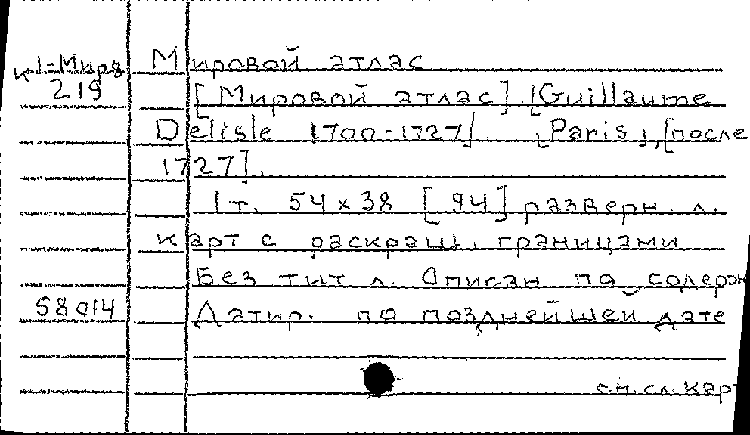 К 1-Мира
219
Мировой атлас
[Мировой атлас] [Guillaume
Delisle 1700-1727]. [Paris], [после
1727].
1 т. 54 х 38 [94] разверн. л.
карт с раскраш. границами
Без тит л. Описан по содерж
58014
Датир. по позднейшей дате
см. сл. карт